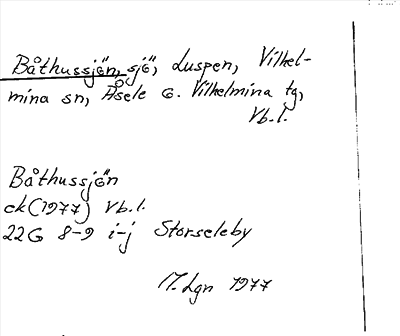 Båthussjön, sjö, Luspen, Vilhel-
mina sn, Åsele o. Vilhelmina tg,
Vb.l.
Båthussjön
ek (1977) Vb.l.
22G 8-9 i-j Storseleby
M. Lgn 1977